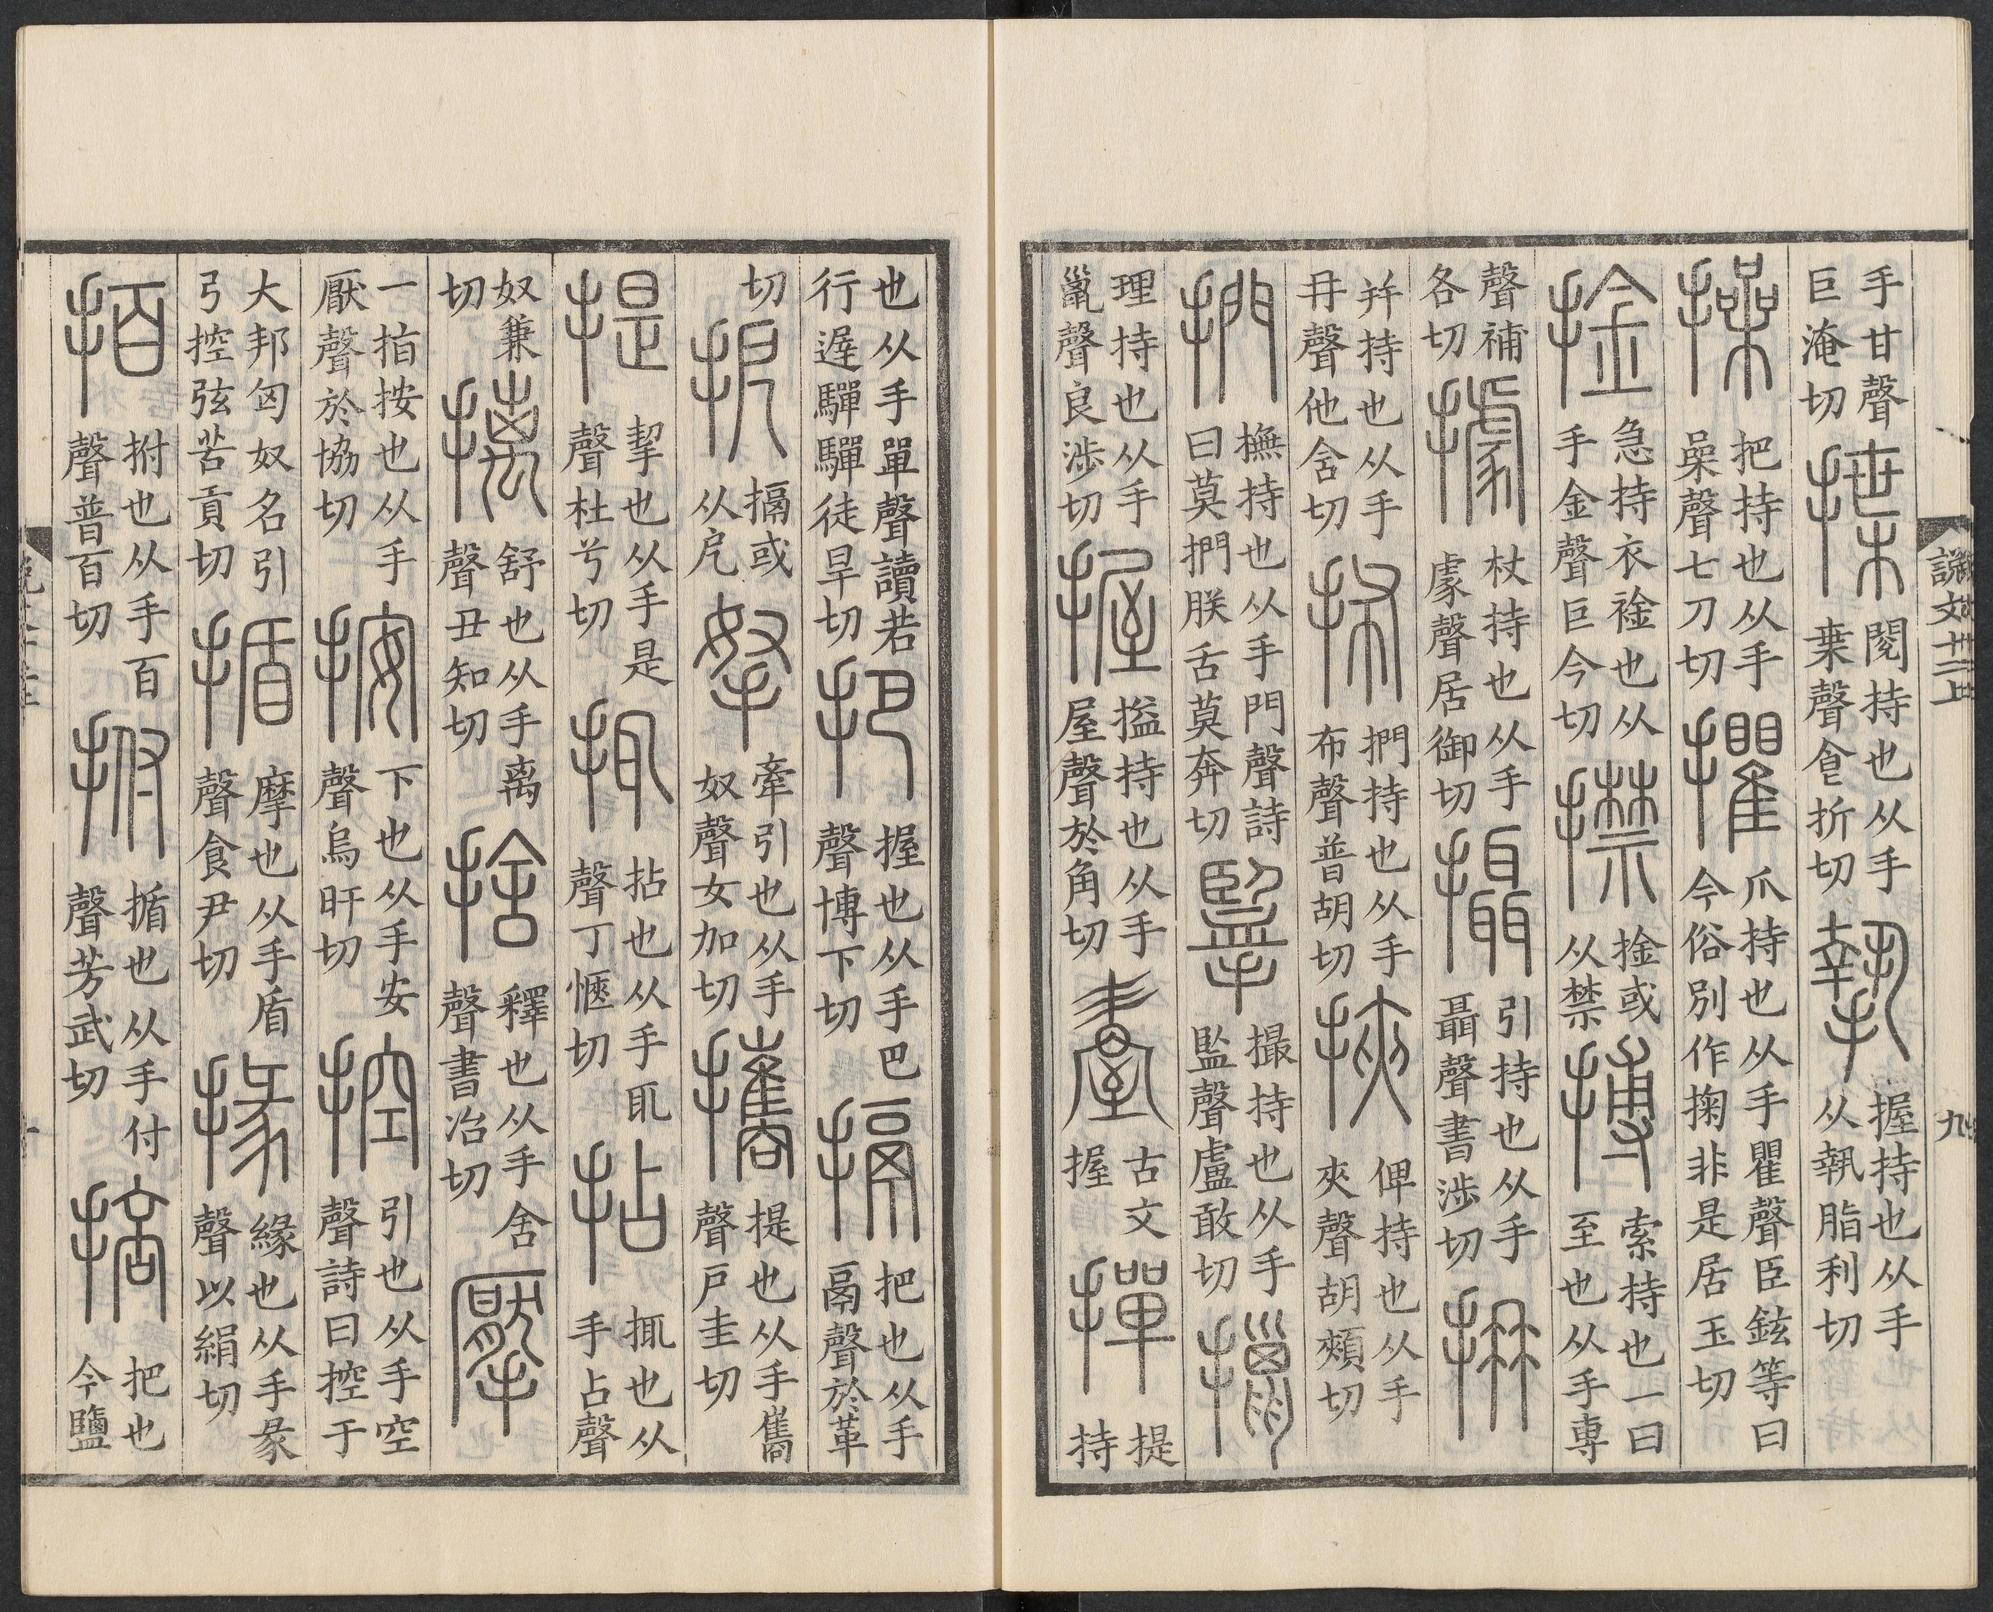 手甘聲巨淹切 揲 閱持也从手枼聲食折切 摯 握持也从手从執脂利切
操 把持也从手喿聲七刀切 攫 爪持也从手瞿聲臣鉉等曰今俗別作掬非是居玉切
捦 急持衣䘳也从手金聲巨今切 㩒 捦或从禁 搏 索持也一曰至也从手尃
聲補各切 據 杖持也从手豦聲居御切 攝 引持也从手聶聲書涉切 抩
并持也从手冄聲他含切 抪 捫持也从手布聲普胡切 挾 俾持也从手夾聲胡頰切
捫 撫持也从手門聲詩曰莫捫朕舌莫奔切 㨫 撮持也从手監聲盧敢切 擸
理持也从手巤聲良涉切 握 搤持也从手屋聲於角切 古文握 撣 提持
說文十二上 九
也从手單聲讀若行遟驒驒徒旱切 把 握也从手巴聲博下切 搹 把也从手鬲聲於革
切 㧖 搹或从戹 拏 牽引也从手奴聲女加切 攜 提也从手巂聲戶圭切
提 挈也从手是聲杜兮切 㧴 拈也从手耴聲丁愜切 拈 㧴也从手占聲
奴兼切 摛 舒也从手离聲丑知切 捨 釋也从手舍聲書冶切 擪
一指按也从手厭聲於協切 按 下也从手安聲烏旰切 控 引也从手空聲詩曰控于
大邦匈奴名引弓控弦苦貢切 揗 摩也从手盾聲食尹切 掾 緣也从手彖聲以絹切
㧸 拊也从手百聲普百切 拊 揗也从手付聲芳武切 掊 把也今鹽